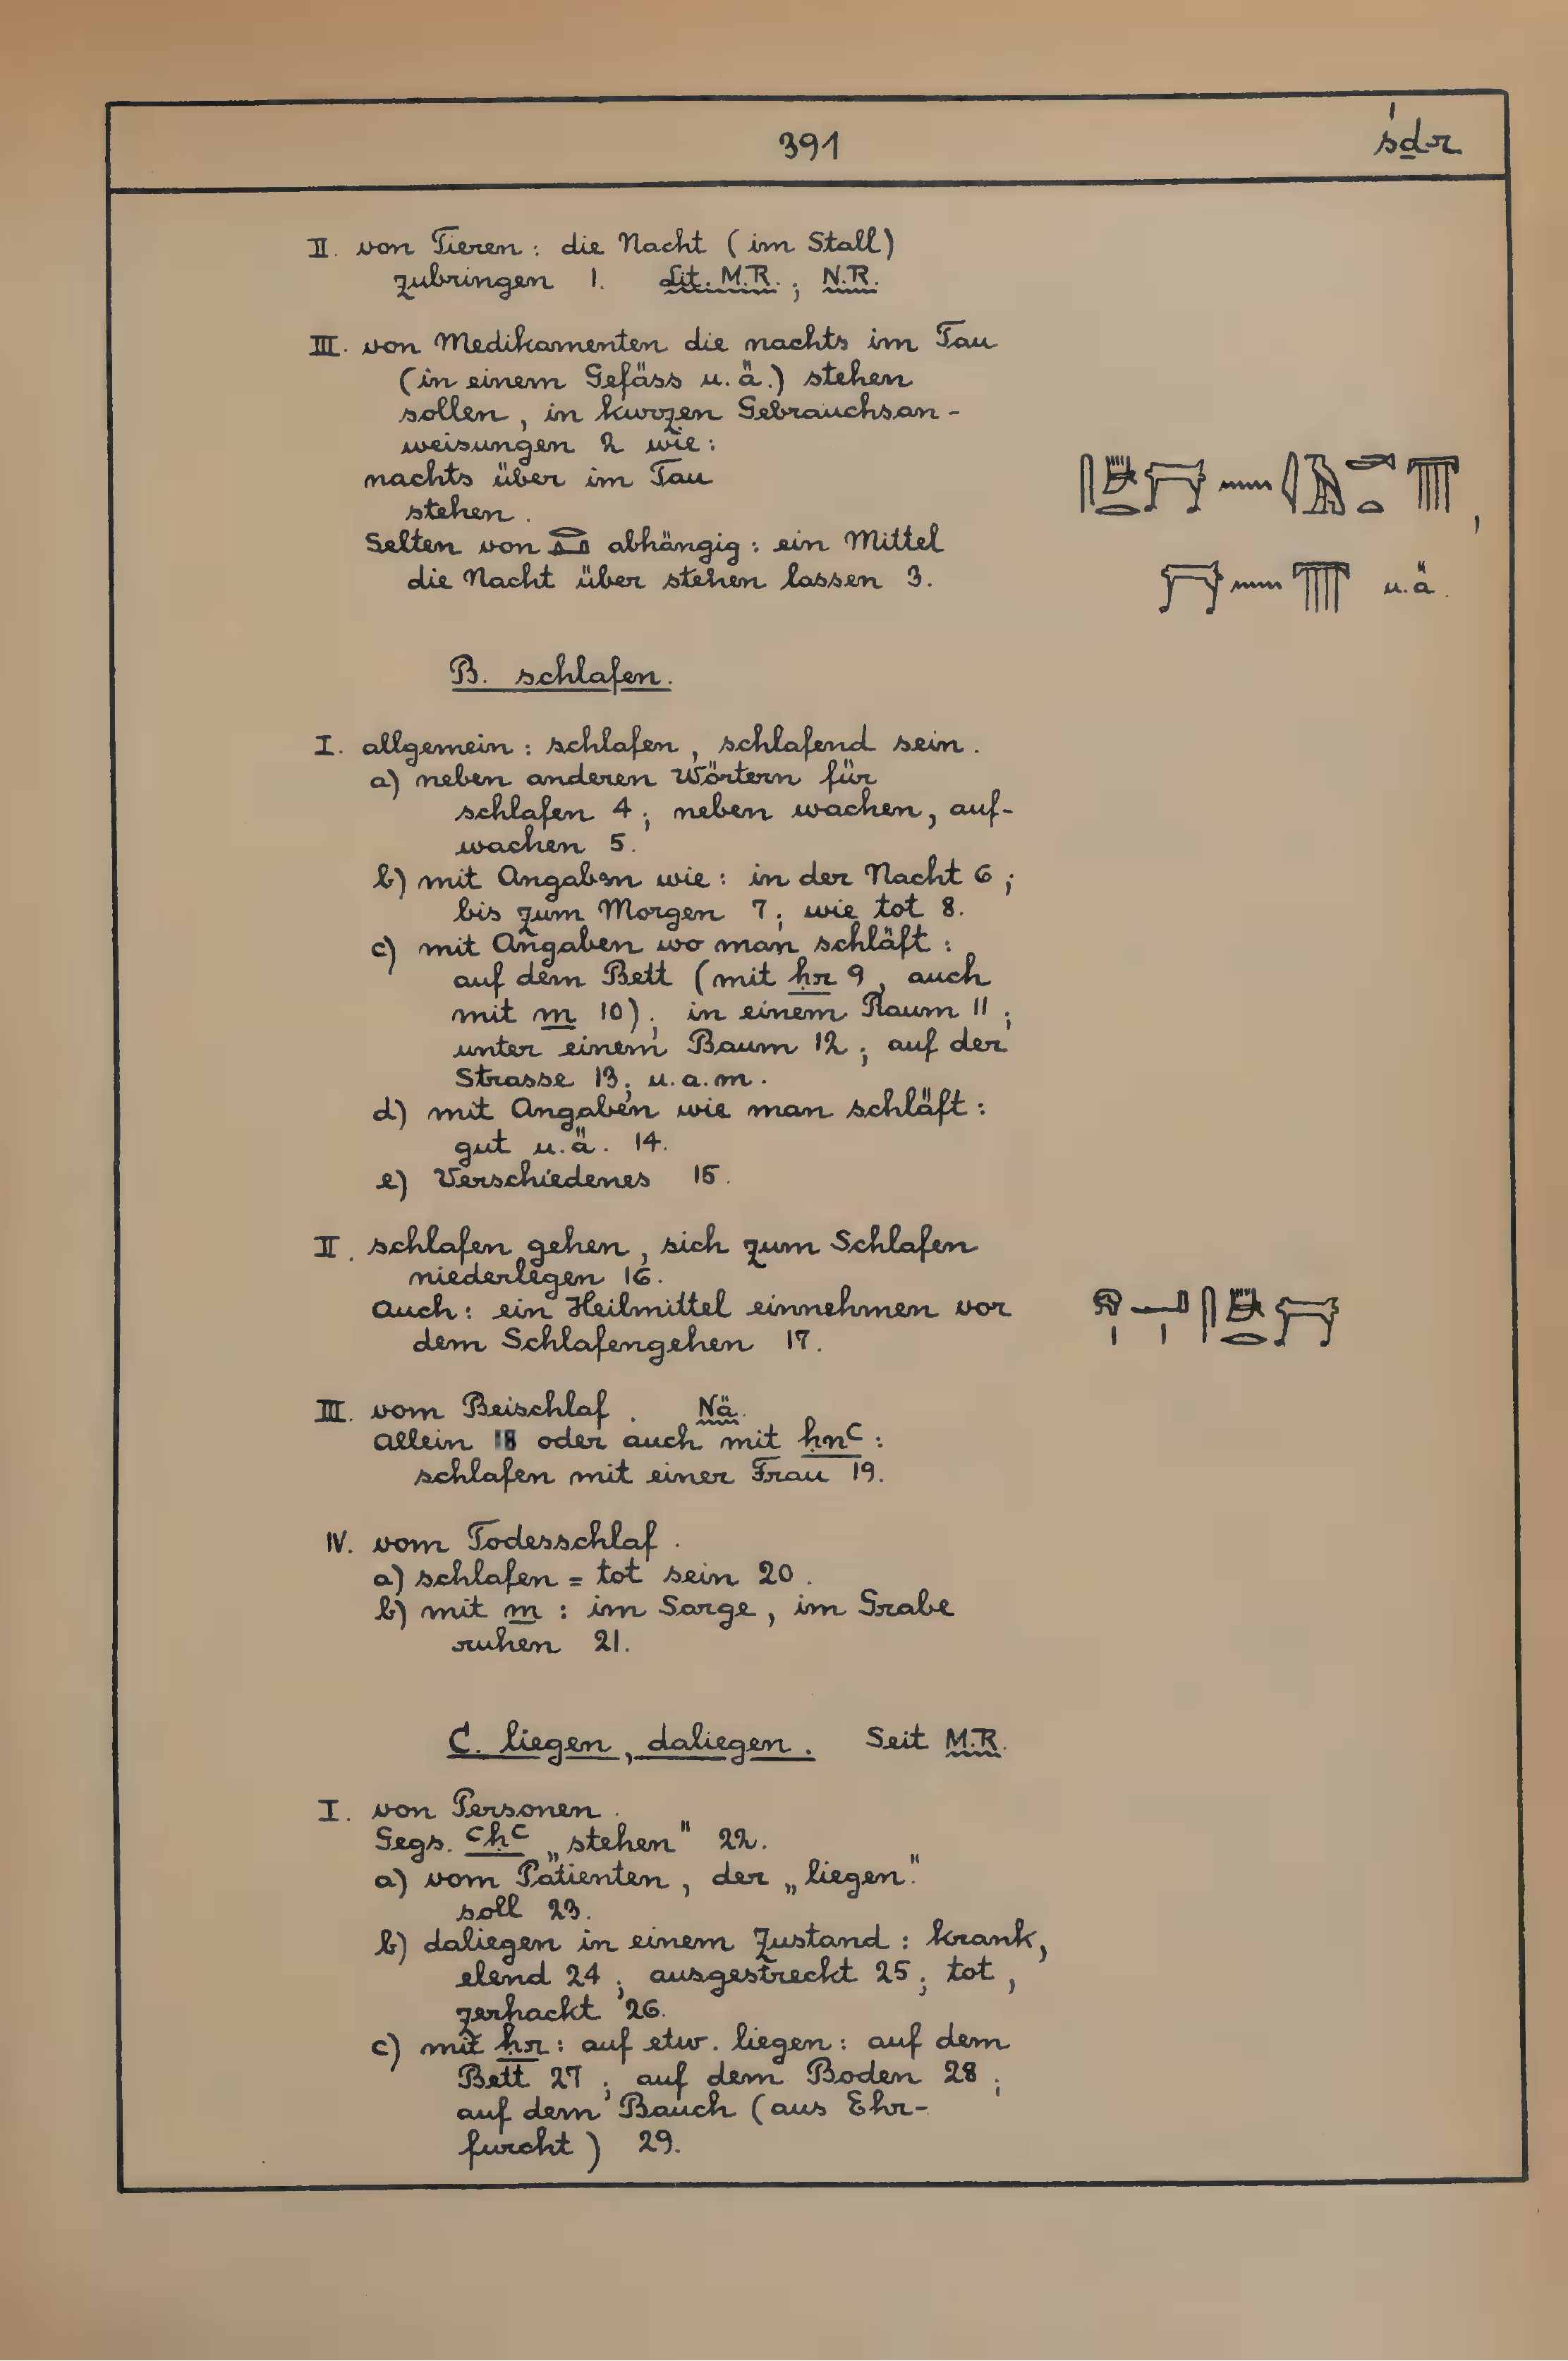 391
śḏr
II. von Tieren: die Nacht (im Stall)
zubringen 1. Lit. M.R.; N.R.
III. von Medikamenten die nachts im Tau
(in einem Gefäss u.ä.) stehen
sollen, in kurzen Gebrauchsan-
weisungen 2 wie:
nachts über im Tau
stehen.
Selten von abhängig: ein Mittel
die Nacht über stehen lassen 3.
u.ä.
B. schlafen.
I. allgemein: schlafen, schlafend sein.
a) neben anderen Wörtern für
schlafen 4; neben wachen, auf-
wachen 5.
b) mit Angaben wie: in der Nacht 6;
bis zum Morgen 7; wie tot 8.
c) mit Angaben wo man schläft:
auf dem Bett (mit ḥr 9, auch
mit m 10); in einem Raum 11;
unter einem Baum 12; auf der
Strasse 13; u.a.m.
d) mit Angaben wie man schläft:
gut u.ä. 14.
e) Verschiedenes 15.
II. schlafen gehen, sich zum Schlafen
niederlegen 16.
Auch: ein Heilmittel einnehmen vor
dem Schlafengehen 17.
III. vom Beischlaf. Nä.
Allein 18 oder auch mit ḥnꜥ:
schlafen mit einer Frau 19.
IV. vom Todesschlaf.
a) schlafen = tot sein 20.
b) mit m: im Sarge, im Grabe
ruhen 21.
C. liegen, daliegen. Seit M.R.
I. von Personen.
Gegs. ꜥḥꜥ „stehen" 22.
a) vom Patienten, der „liegen"
soll 23.
b) daliegen in einem Zustand: krank,
elend 24; ausgestreckt 25; tot,
zerhackt 26.
c) mit ḥr: auf etw. liegen: auf dem
Bett 27; auf dem Boden 28;
auf dem Bauch (aus Ehr-
furcht) 29.